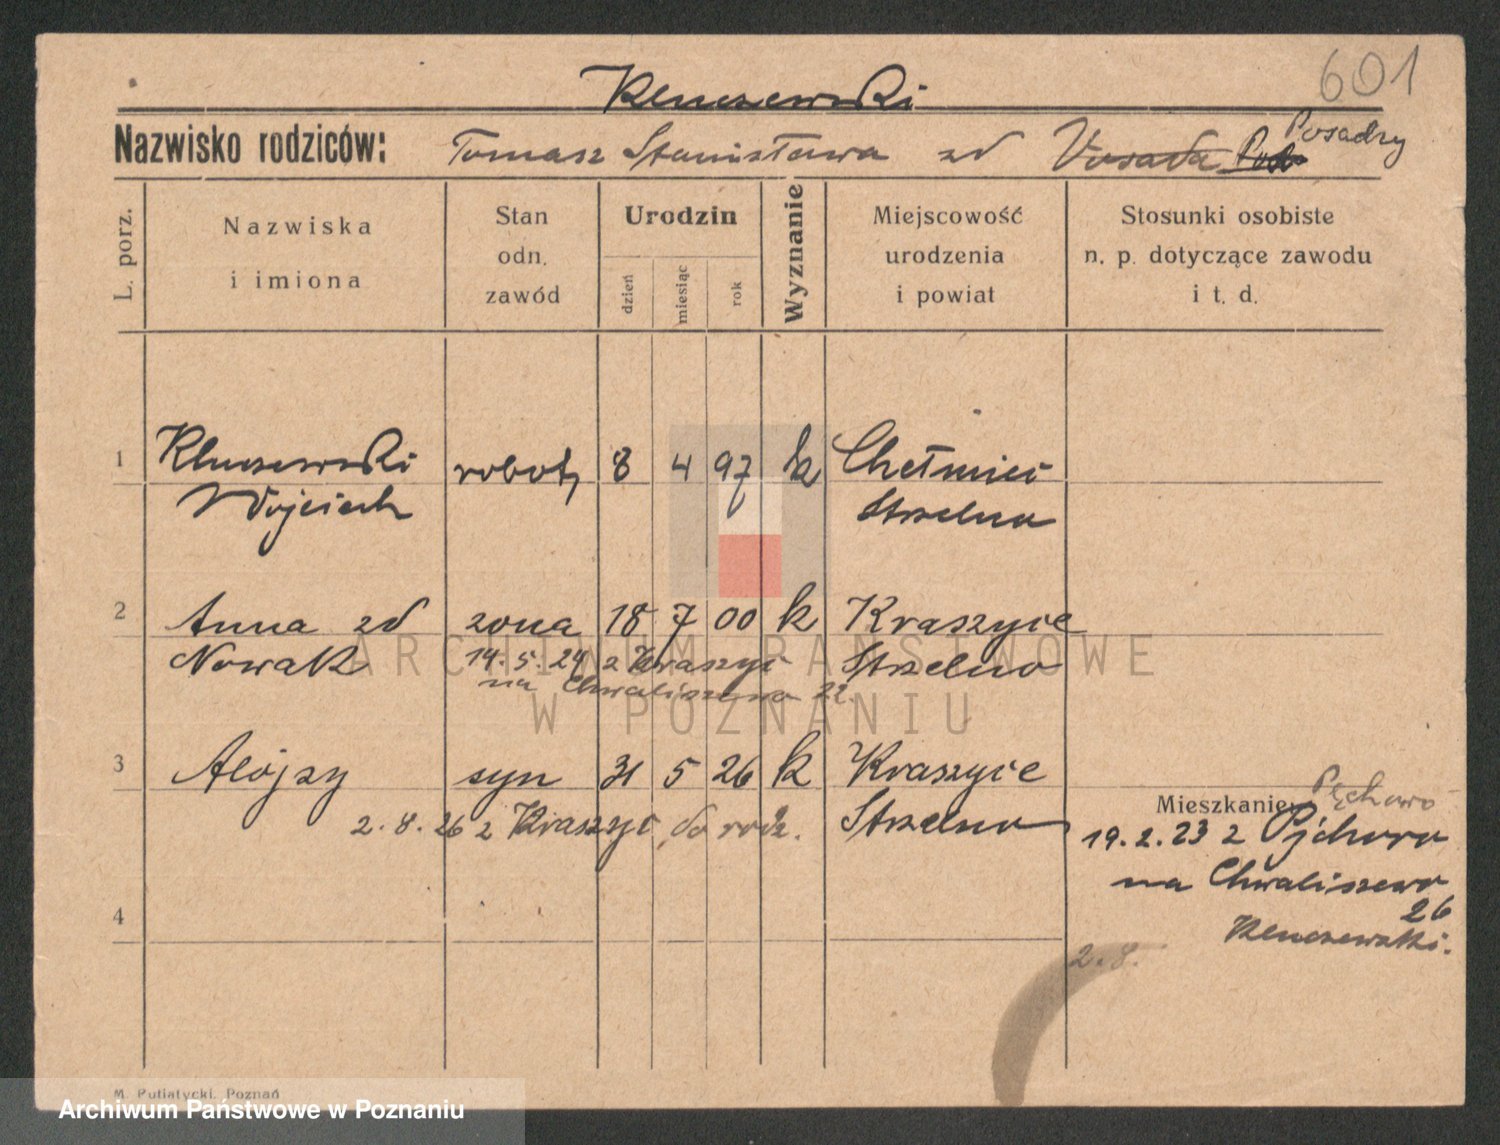 601
Kluczewski
Nazwisko rodziców: Tomasz Stanisława zd Posadzy
L. porz.
Nazwiska i imiona
Stan odn. zawód
Urodzin
dzień
miesiąc
rok
Wyznanie
Miejscowość urodzenia i powiat
Stosunki osobiste n. p. dotyczące zawodu i t. d.
1 Kluczewski robotn 8 4 97 k Chełmici
Wojciech Strzelno
2 Anna zd żona 18 7 00 k Kraszyce
Nowak 14. 5. 24 z Kraszyc Strzelno
na Chwaliszewo 22.
3 Alojzy syn 31 5 26 k Kraszyce
2. 8. 26 z Kraszyc do rodz. Strzelno
Mieszkanie: Pęchowo
19. 2. 23 z Pjchowo
na Chwaliszewo
26
Kluczewski.
4
2. 8.
M. Putiatycki, Poznań
ARCHIWUM PAŃSTWOWE
W POZNANIU
Archiwum Państwowe w Poznaniu